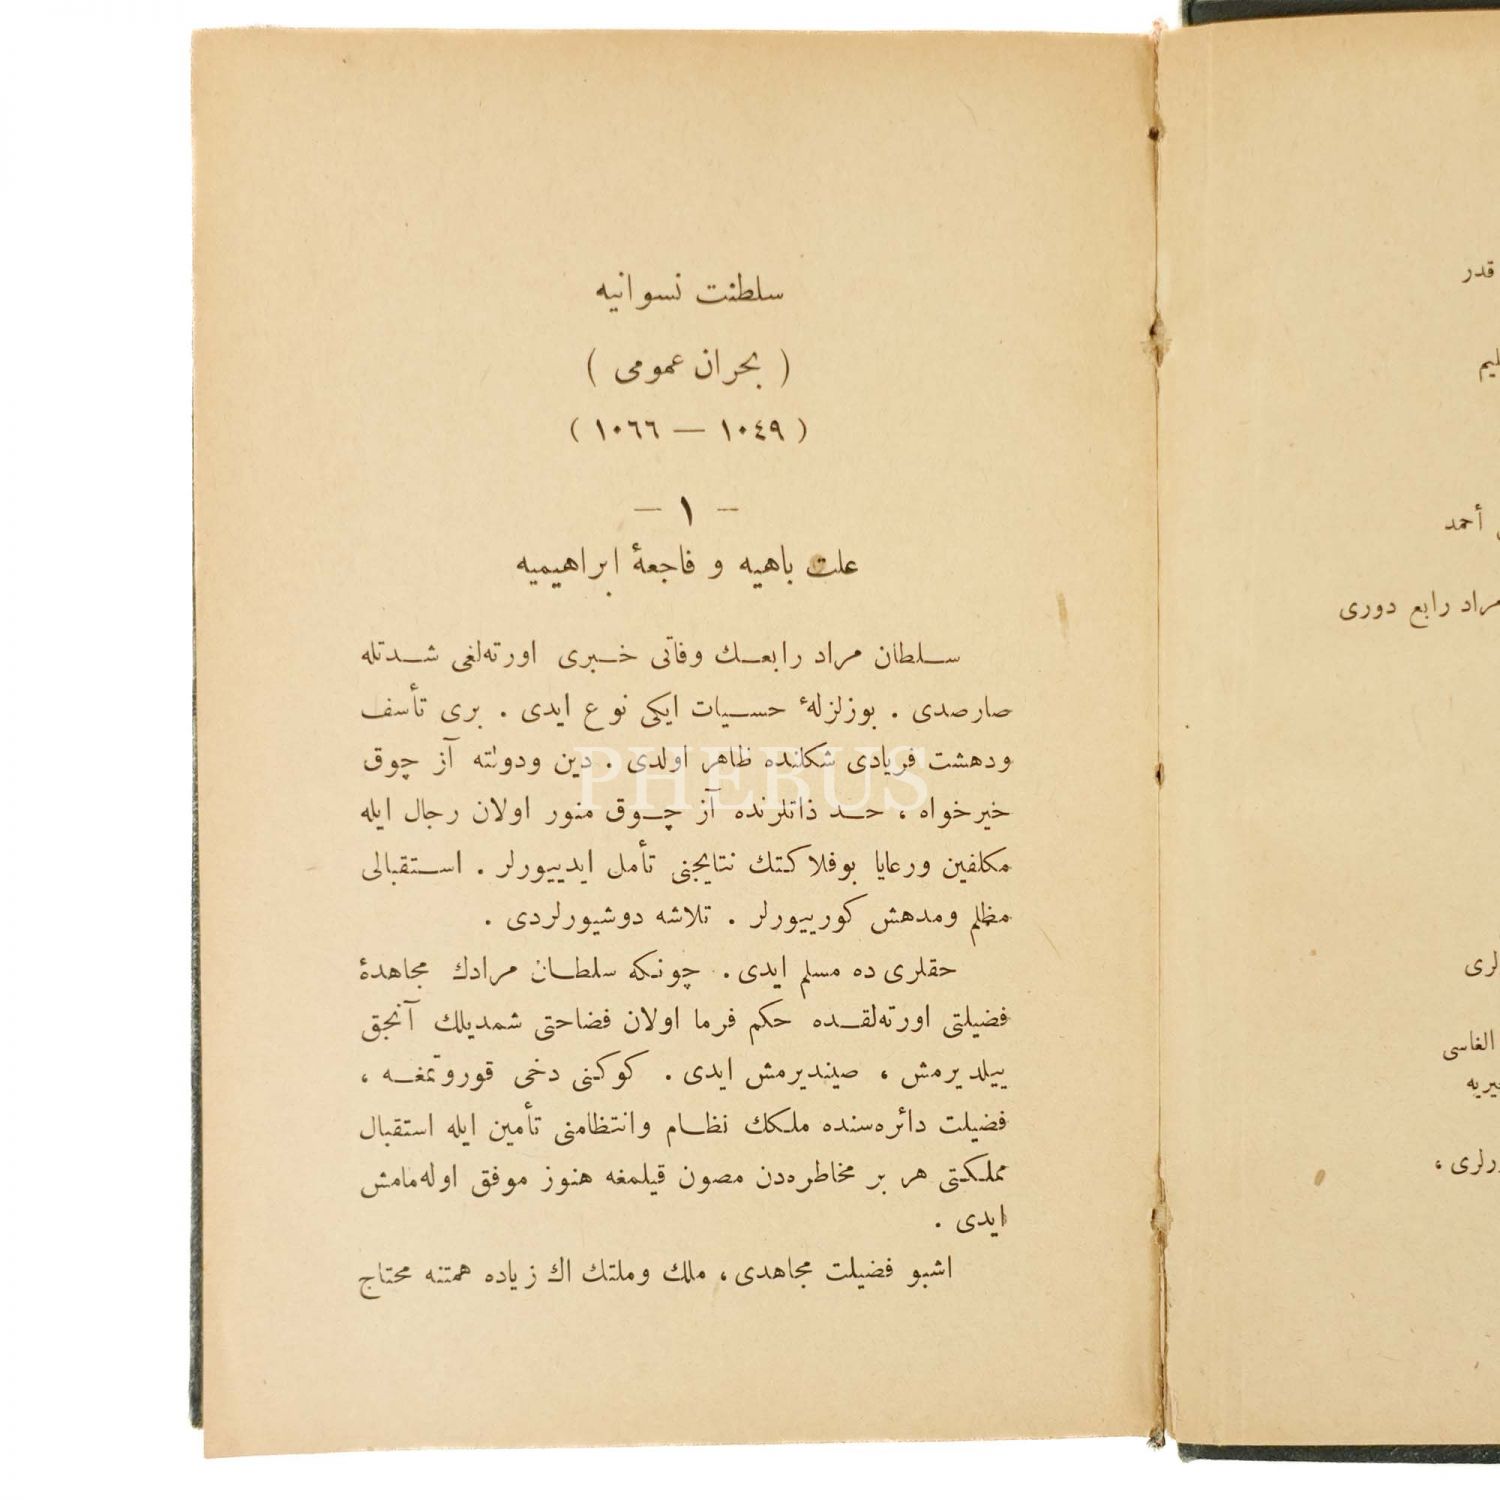 سلطنت نسوانیه
( بحران عمومی )
( ١٠٤٩ — ١٠٦٦ )
— ١ —
علت باهیه و فاجعهٔ ابراهیمیه
سلطان مراد رابعك وفاتی خبری اورته‌لغی شدتله
صارصدی . بوزلزلهٔ حسیات ایکی نوع ایدی . بری تأسف
ودهشت فریادی شکلنده ظاهر اولدی . دین ودولته آز چوق
خیرخواه ، حد ذاتلرنده آز چوق منور اولان رجال ایله
مکلفین ورعایا بوفلاکتك نتایجنی تأمل ایدییورلر . استقبالی
مظلم ومدهش کورییورلر . تلاشه دوشیورلردی .
حقلری ده مسلم ایدی . چونکه سلطان مرادك مجاهدهٔ
فضیلتی اورته‌لقده حکم فرما اولان فضاحتی شمدیلك آنجق
ییلدیرمش ، صیندیرمش ایدی . کوکنی دخی قوروتمغه ،
فضیلت دائره‌سنده ملكك نظام وانتظامنی تأمین ایله استقبال
مملکتی هر بر مخاطره‌دن مصون قیلمغه هنوز موفق اوله‌مامش
ایدی .
اشبو فضیلت مجاهدی ، ملك وملتك اك زیاده همتنه محتاج
PHEBUS
قدر
أحمد
مراد رابع دوری
لری
الغاسی